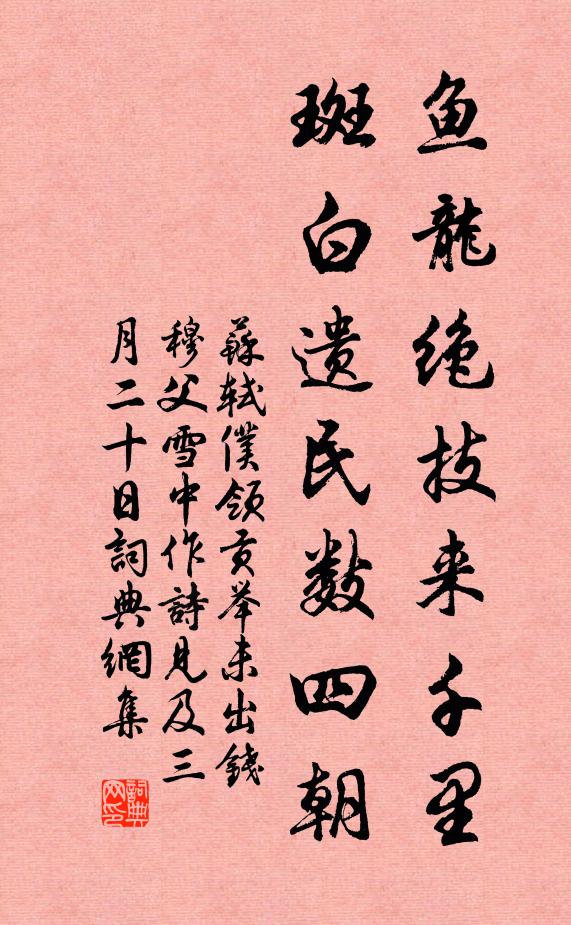 鱼龍绝技来千里
斑白遗民数四朝
蘇轼僕领贡举未出錢
穆父雪中作詩見及三
月二十日詞典網集
詞典网印